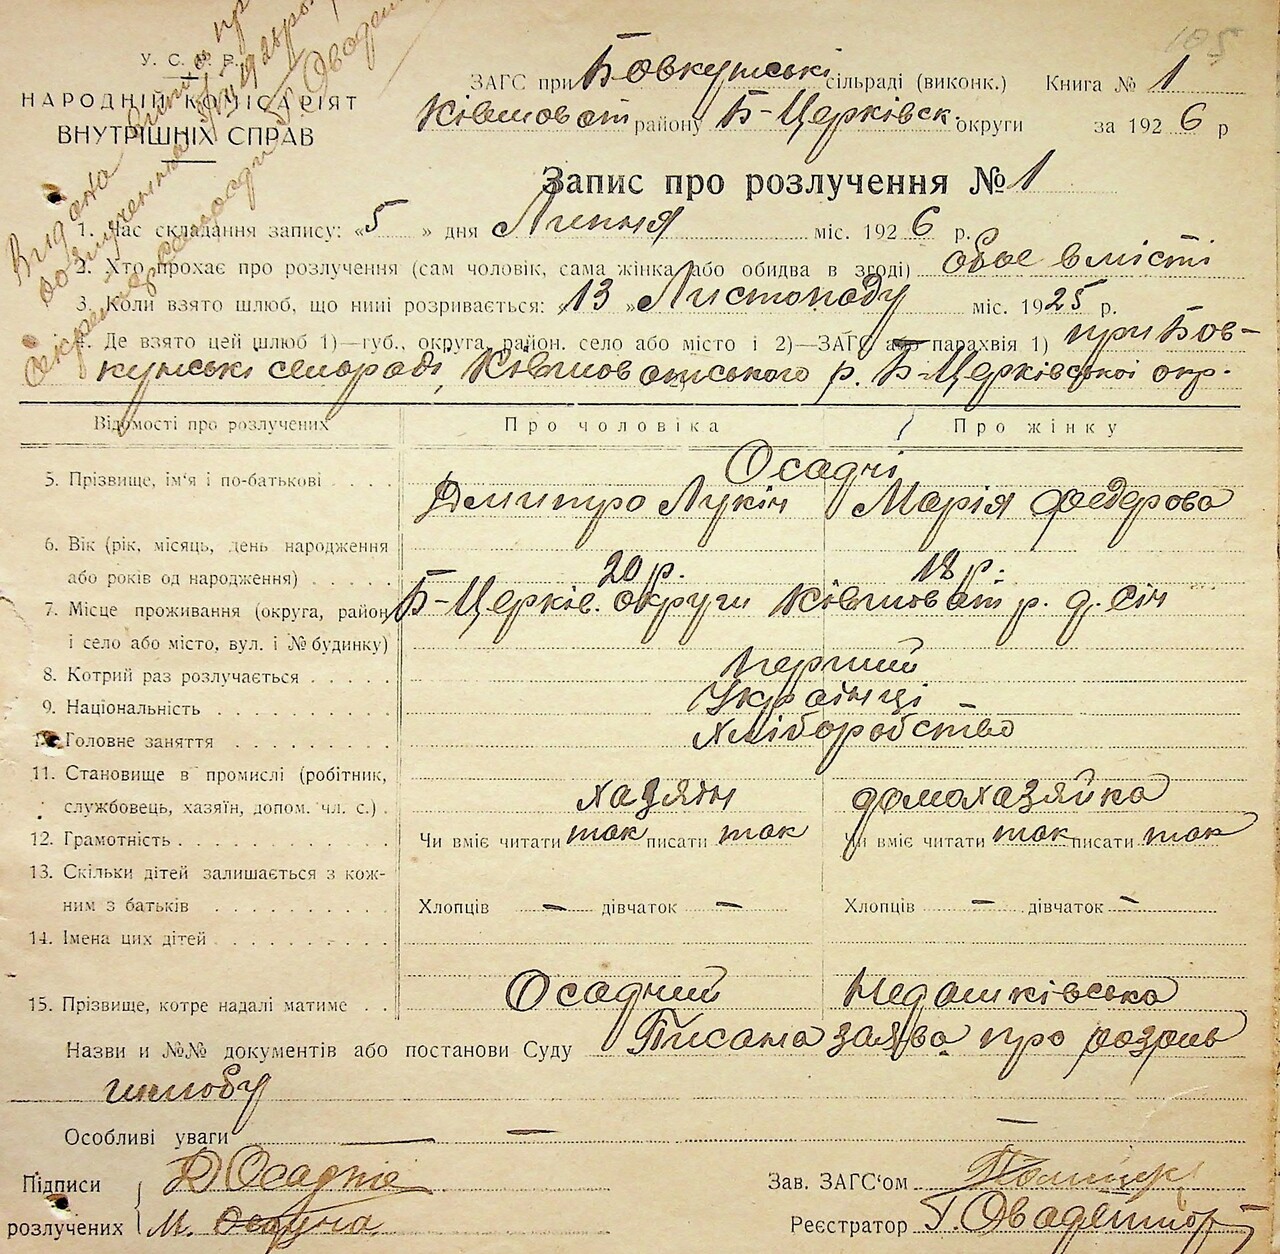 105
У. С. Р. Р.
НАРОДНІЙ КОМІСАРІЯТ
ВНУТРІШНІХ СПРАВ
Видана
ЗАГС при Бовкунські сільраді (виконк.) Книга № 1
Ківшоват району Б-Церківск. округи за 1926 р
Запис про розлучення № 1
1. Час складання запису: «5» дня Липня міс. 1926 р.
2. Хто прохає про розлучення (сам чоловік, сама жінка або обидва в згоді) обоє вмісті
3. Коли взято шлюб, що нині розривається: «13» Листопаду міс. 1925 р.
4. Де взято цей шлюб 1)—губ., округа, район. село або місто і 2)—ЗАГС або парахвія 1) при Бов-
кунські сельраді, Ківшоватського р. Б-Церківскої окр.
Відомості про розлучених Про чоловіка Про жінку
Осадчі
5. Прізвище, ім'я і по-батькові Дмитро Лукін Марія Федерова
6. Вік (рік, місяць, день народження
або років од народження) 20 р. 18 р.
7. Місце проживання (округа, район Б-Церків. округи Ківшоват р. д. Січ
і село або місто, вул. і № будинку)
8. Котрий раз розлучається Перший
9. Національність Українці
10. Головне заняття Хліборобство
11. Становище в промислі (робітник,
службовець, хазяїн, допом. чл. с.) хазяїн домохазяйка
12. Грамотність Чи вміє читати так писати так Чи вміє читати так писати так
13. Скільки дітей залишається з кож-
ним з батьків Хлопців — дівчаток — Хлопців — дівчаток —
14. Імена цих дітей
15. Прізвище, котре надалі матиме Осадчий Недашківська
Назви и №№ документів або постанови Суду Писана заява про розрив
шлюбу
Особливі уваги — —
Підписи Д Осадчие Зав. ЗАГС'ом
розлучених М. Осадча Реєстратор Г. Овадентор